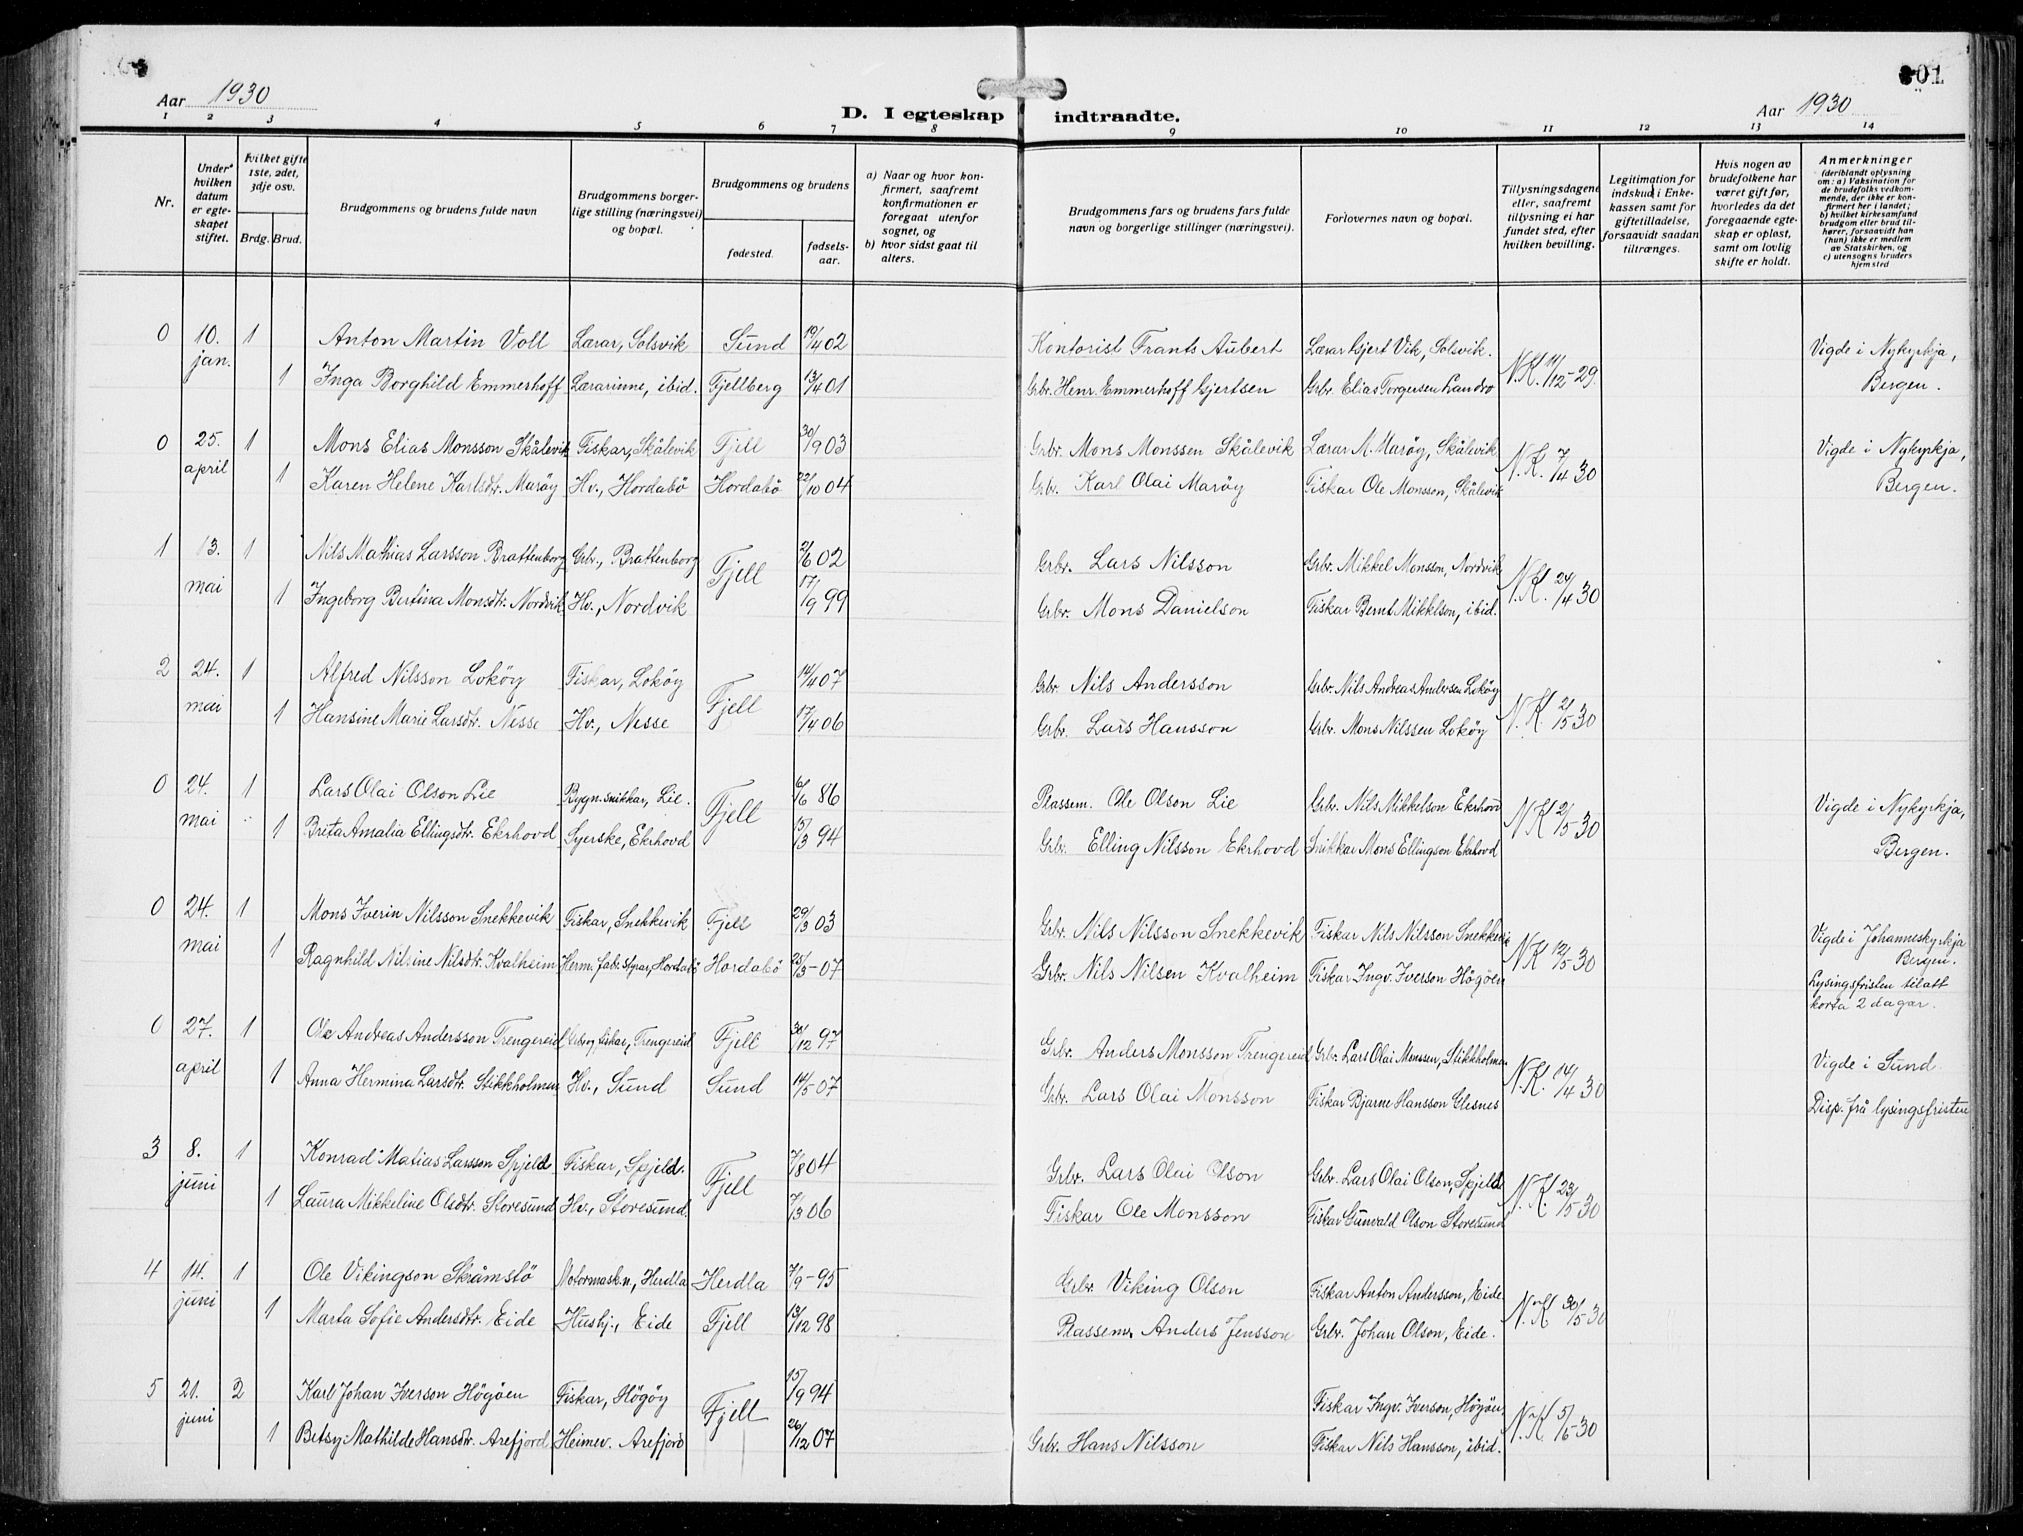 Aar 1930
D. I egteskap indtraadte.
Aar 1930
01
1 2 3 4 5 6 7 8 9 10 11 12 13 14
Nr.
Under hvilken datum er egteskapet stiftet.
Hvilket gifte 1ste, 2det, 3dje osv.
Brdg. Brud.
Brudgommens og brudens fulde navn
Brudgommens borgerlige stilling (næringsvei) og bopæl.
Brudgommens og brudens
fødested.
fødselsaar.
a) Naar og hvor konfirmert, saafremt konfirmationen er foregaat utenfor sognet, og
b) hvor sidst gaat til alters.
Brudgommens fars og brudens fars fulde navn og borgerlige stillinger (næringsvei).
Forlovernes navn og bopæl.
Tillysningsdagene eller, saafremt tillysning ei har fundet sted, efter hvilken bevilling.
Legitimation for indskud i Enkekassen samt for giftetilladelse, forsaavidt saadan tiltrænges.
Hvis nogen av brudefolkene har været gift før, hvorledes da det foregaaende egteskap er opløst, samt om lovlig skifte er holdt.
Anmerkninger (deriblandt oplysning om: a) Vaksination for de brudefolks vedkommende, der ikke er konfirmert her i landet; b) hvilket kirkesamfund brudgom eller brud tilhører, forsaavidt han (hun) ikke er medlem av Statskirken, og c) utensogns bruders hjemsted
0 10. jan. 1 Anton Martin Voll Lærar, Solsvik Sund 19/4 02 Kontorist Frants Aubert Lærar Gjert Vik, Solsvik. N.K. 11/12-29. Vigde i Nykyrkja, Bergen.
1 Inga Borghild Emmerhoff Lærarinne, ibid. Fjellberg 13/4 01 Grbr. Henr. Emmerhoff Gjertsen Grbr. Elias Torgersen Landro
0 25. april 1 Mons Elias Monsson Skålevik Fiskar, Skålevik Fjell 30/9 03 Grbr. Mons Monssen Skålevik Lærar A. Marøy, Skålevik N.K. 7/4 30 Vigde i Nykyrkja, Bergen.
1 Karen Helene Karlsdtr. Marøy Hv., Hordabö Hordabö 22/10 04 Grbr. Karl Olai Marøy Fiskar Ole Monsson, Skålevik
1 13. mai 1 Nils Mathias Larsson Brattenborg Grbr., Brattenborg Fjell 2/6 02 Grbr. Lars Nilsson Grbr. Mikkel Monsson, Nordvik N.K. 24/4 30
1 Ingeborg Bertina Monsdtr. Nordvik Hv., Nordvik 17/9 99 Grbr. Mons Danielson Fiskar Bernt Mikkelson, ibid.
2 24. mai 1 Alfred Nilsson Loköy Fiskar, Loköy Fjell 14/4 07 Grbr Nils Andersson Grbr. Nils Andreas Andersen Loköy N.K. 2/5 30
1 Hansine Marie Larsdtr. Nesse Hv., Nesse 17/4 06 Grbr. Lars Hansson Grbr. Mons Nilssen Loköy
0 24. mai 1 Lars Olai Olson Lie Bygn.snikkar, Lie. Fjell 6/6 86 Plassem. Ole Olson Lie Grbr. Nils Mikkelson Ekrhovd N.K. 2/5 30 Vigde i Nykyrkja, Bergen.
1 Breta Amalia Ellingsdtr. Ekrhovd Syerske, Ekrhovd 13/3 94 Grbr. Elling Nilsson Ekrhovd Snikkar Mons Ellingson Ekrhovd
0 24. mai 1 Mons Iverin Nilsson Snekkevik Fiskar, Snekkevik Fjell 29/3 03 Grbr. Nils Nilsson Snekkevik Fiskar Nils Nilsson Snekkevik N.K 12/5 30 Vigde i Johanneskyrkja Bergen. Lysingsfristen tilatt korta 2 dagar.
1 Ragnhild Nilsine Nilsdtr. Kvalheim Herm. fabr. styrar, Hordabö Hordabö 25/5-07 Grbr. Nils Nilsen Kvalheim Fiskar Ingv. Iverson Högöen
0 27. april 1 Ole Andreas Andersson Trengereid Grbr og fiskar, Trengereid Fjell 30/12 97 Grbr. Anders Monsson Trengereid Grbr. Lars Olai Monssen, Stikkholmen N.K. 14/4 30 Vigde i Sund. Disp. frå lysingsfristen
1 Anna Hermina Larsdtr. Stikkholmen Hv., Sund Sund 14/5 07 Grbr. Lars Olai Monsson Fiskar Bjarne Hansson Glesnes
3 8. juni 1 Konrad Matias Larsson Spjeld Fiskar, Spjeld. Fjell 7/8 04 Grbr. Lars Olai Olson Grbr. Lars Olai Olson, Spjeld N.K. 23/5 30
1 Laura Mikkeline Olsdtr. Storesund Hv., Storesund. 7/3 06 Fiskar Ole Monsson Fiskar Gunvald Olson Storesund
4 14. juni 1 Ole Vikingson Skåmstö Motormask.n, Herdla Herdla 7/9-95 Grbr. Viking Olson Fiskar Anton Andersson, Eide N.K 30/5 30
1 Marta Sofie Andersdtr. Eide Hushj., Eide Fjell 13/12 98 Plassem. Anders Jensson Grbr. Johan Olson, Eide.
5 21. juni 2 Karl Johan Iverson Högöen Fiskar, Högöy Fjell 15/9 94 Fiskar Ingv. Iverson, Högöen N.K. 5/6-30
1 Betsy Mathilde Hansdtr. Arefjord Heimev. Arefjord 26/12 07 Grbr. Hans Nilsson Fiskar Nils Hansson, ibid.